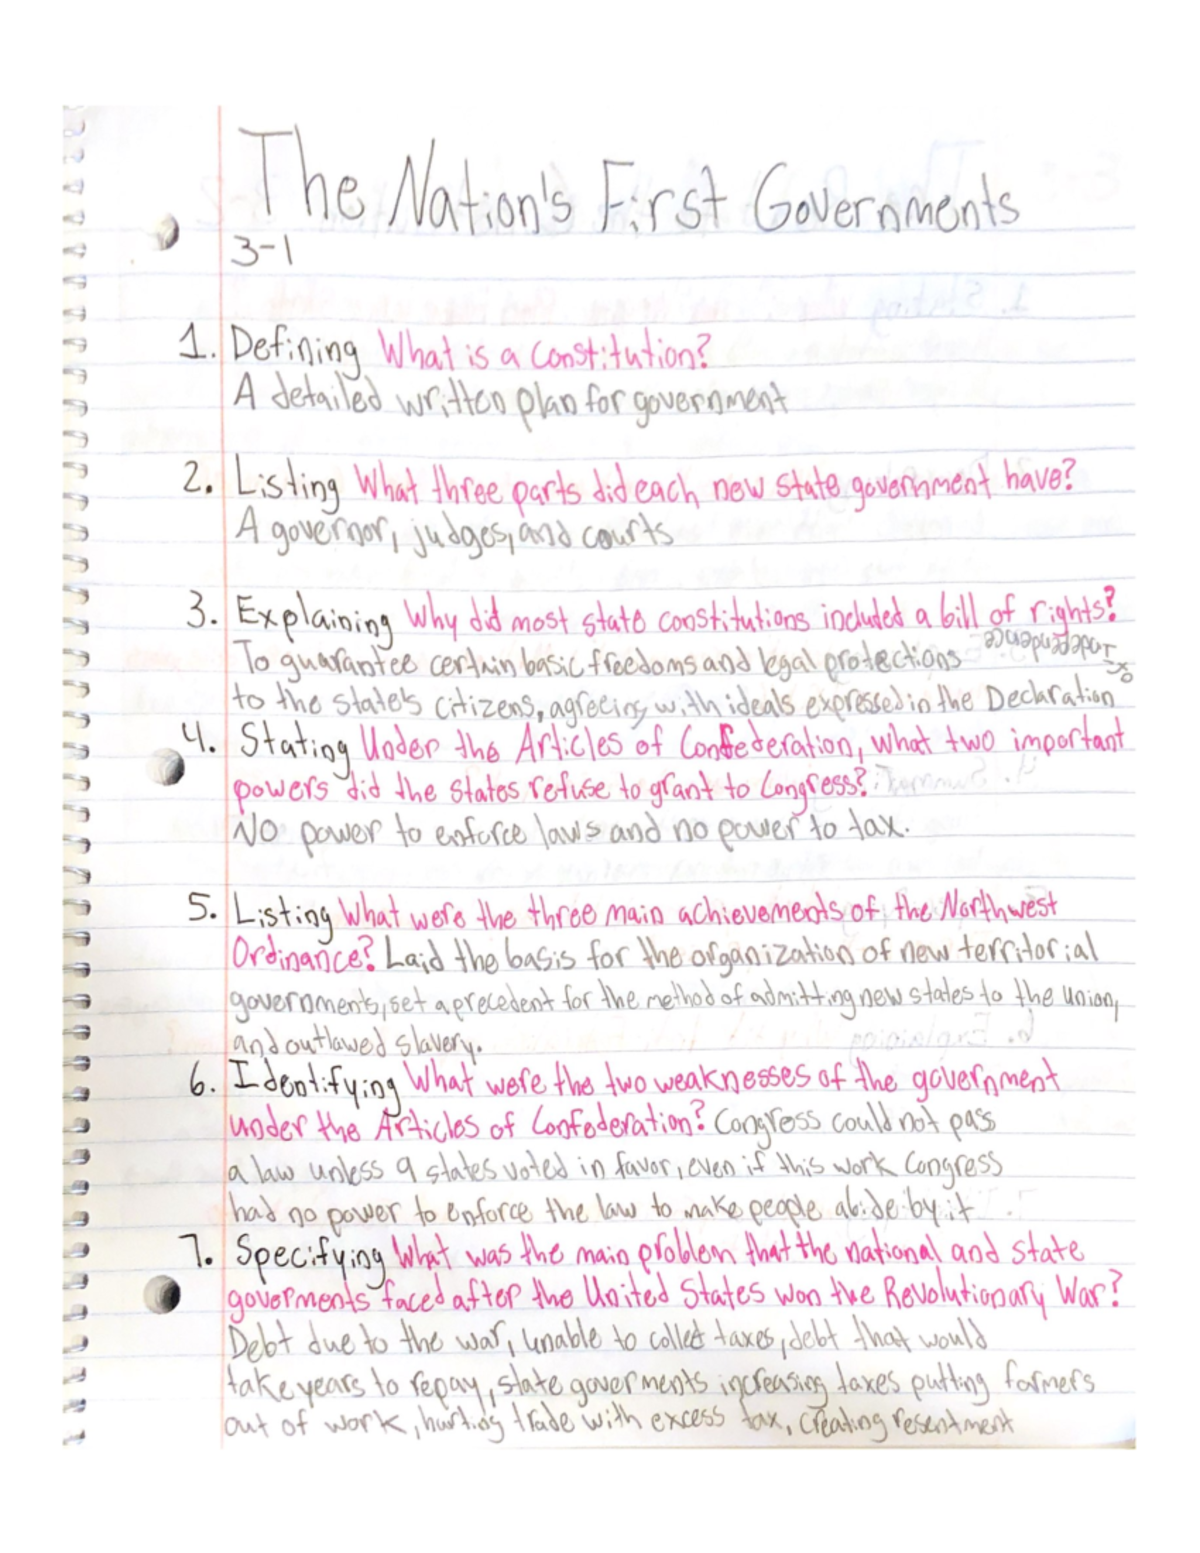 The Nation's First Governments
3-1
1. Defining What is a constitution?
A detailed written plan for government
2. Listing What three parts did each new state government have?
A governor, judges, and courts
3. Explaining Why did most state constitutions included a bill of rights?
To guarantee certain basic freedoms and legal protections
to the state's citizens, agreeing with ideals expressed in the Declaration
of Independence
4. Stating Under the Articles of Confederation, what two important
powers did the states refuse to grant to Congress?
No power to enforce laws and no power to tax.
5. Listing What were the three main achievements of the Northwest
Ordinance? Laid the basis for the organization of new territorial
governments, set a precedent for the method of admitting new states to the union,
and outlawed slavery.
6. Identifying What were the two weaknesses of the government
under the Articles of Confederation? Congress could not pass
a law unless 9 states voted in favor, even if this work Congress
had no power to enforce the law to make people abide by it.
7. Specifying What was the main problem that the national and state
goverments faced after the United States won the Revolutionary War?
Debt due to the war, unable to collect taxes, debt that would
take years to repay, state goverments increasing taxes putting farmers
out of work, hurting trade with excess tax, creating resentment